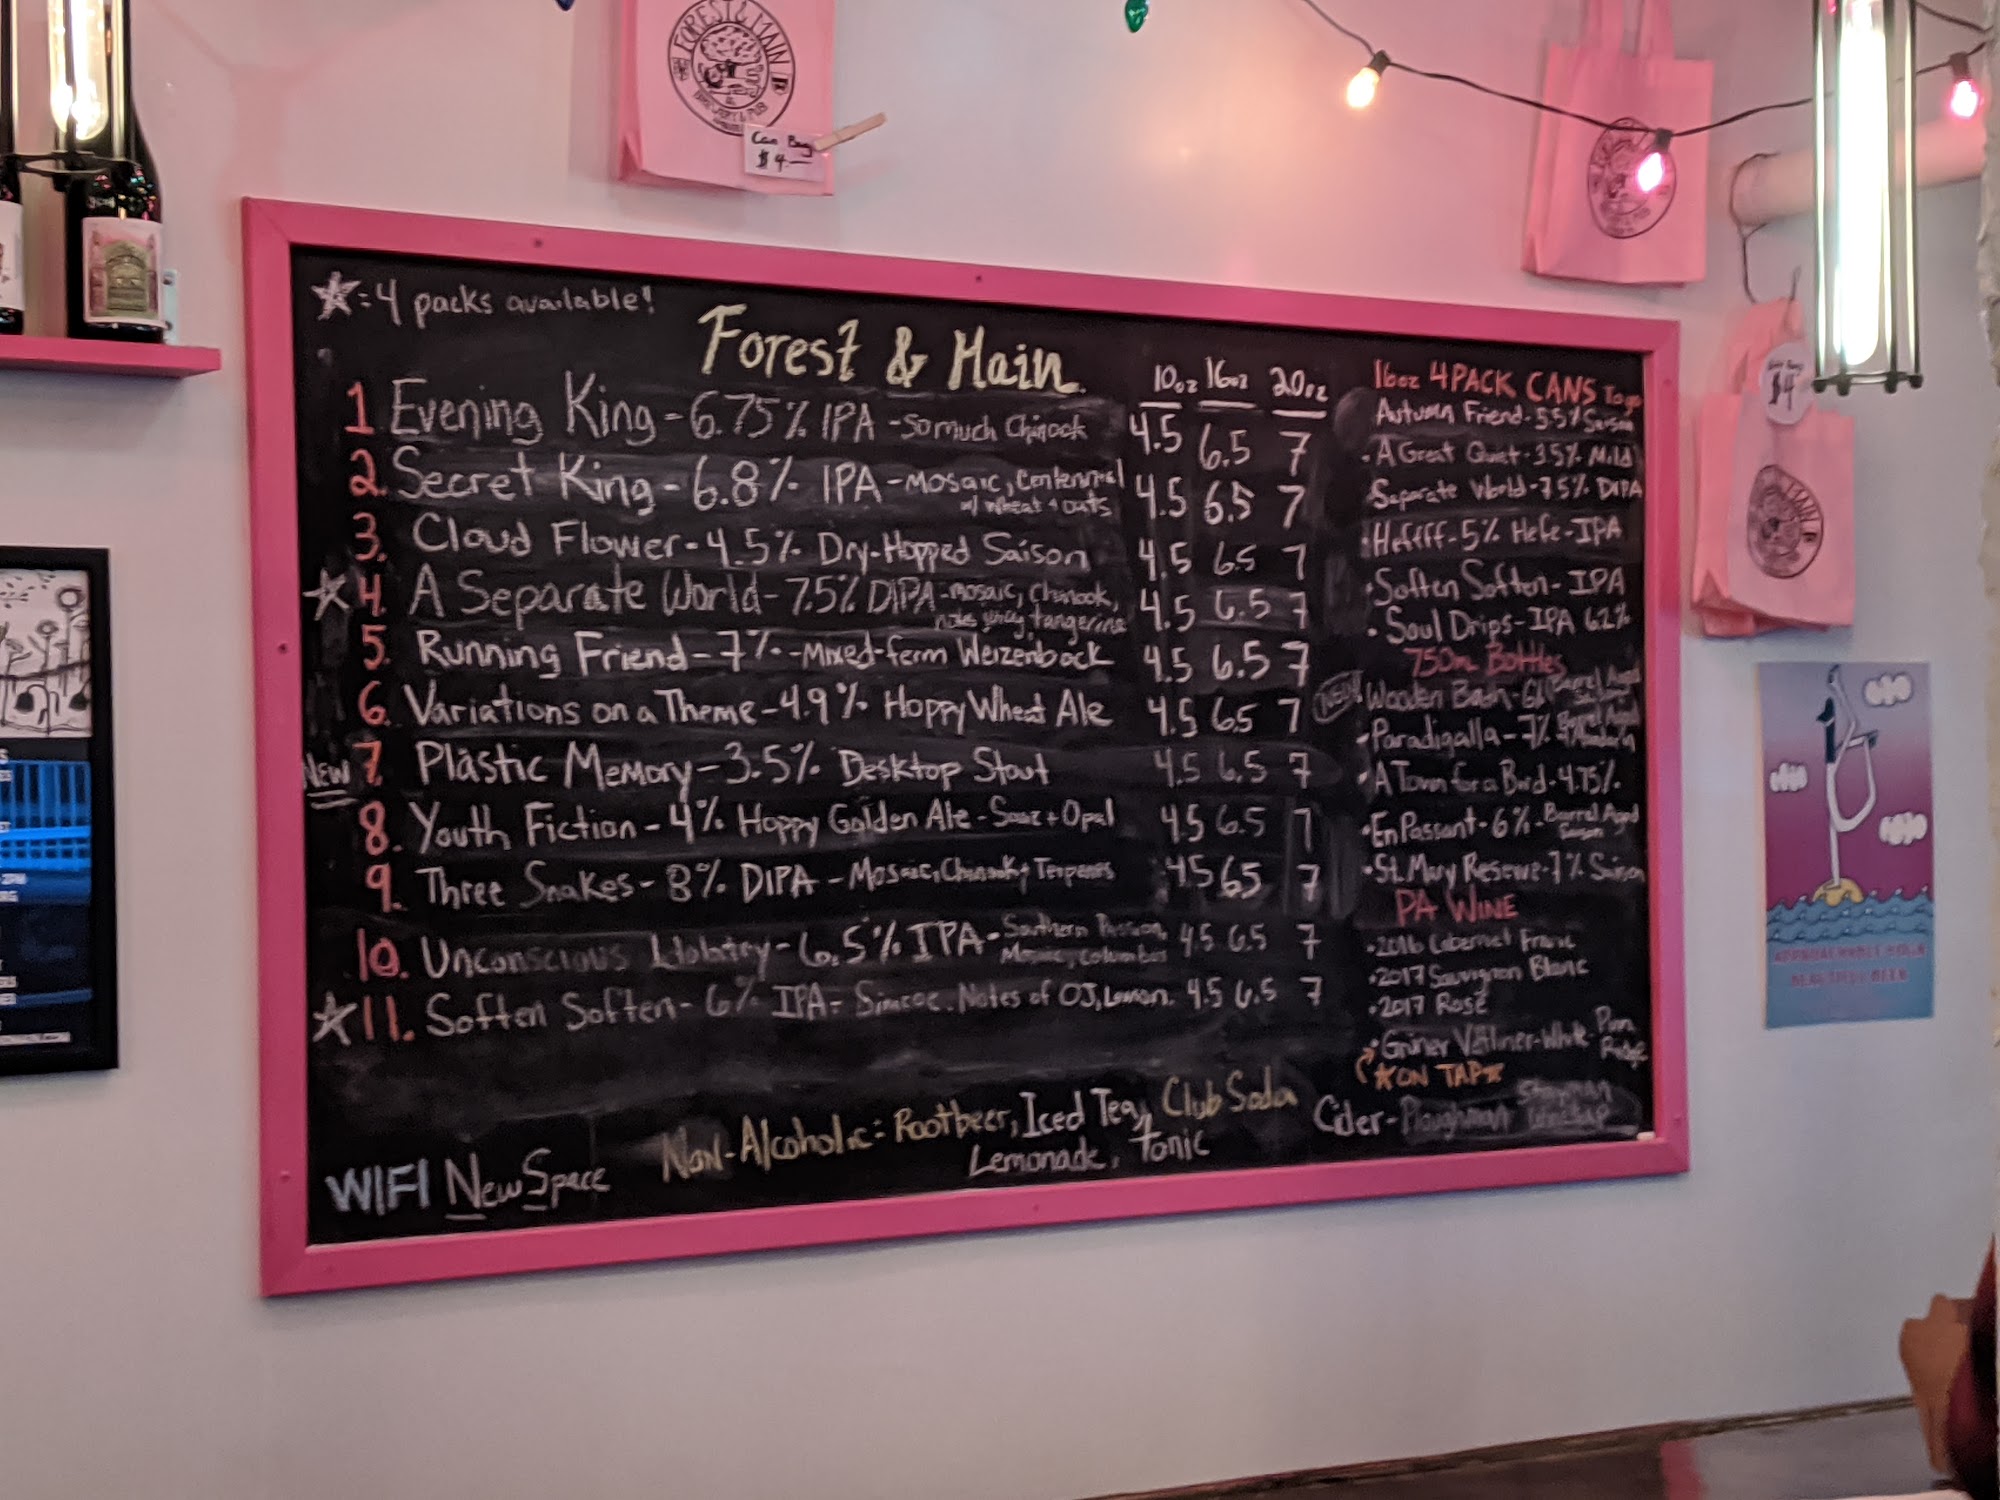 FOREST & MAIN
Can Bag
$4
☆ = 4 packs available!
Forest & Main
10oz 16oz 20oz
1 Evening King - 6.75% IPA - So much Chinook 4.5 6.5 7
2. Secret King - 6.8% IPA - Mosaic, Centennial 4.5 6.5 7
w/ wheat + oats
3. Cloud Flower - 4.5% Dry-Hopped Saison 4.5 6.5 7
☆ 4. A Separate World - 7.5% DIPA - mosaic, Chinook, 4.5 6.5 7
tangerine
5. Running Friend - 7% - Mixed-ferm Weizenbock 4.5 6.5 7
6. Variations on a Theme - 4.9% Hoppy Wheat Ale 4.5 6.5 7
NEW 7. Plastic Memory - 3.5% Desktop Stout 4.5 6.5 7
8. Youth Fiction - 4% Hoppy Golden Ale - Saaz + Opal 4.5 6.5 7
9. Three Snakes - 8% DIPA - Mosaic, Chinook + Terpenes 4.5 6.5 7
10. Unconscious - 6.5% IPA - Southern Passion, 4.5 6.5 7
Mosaic, Columbus
☆ 11. Soften Soften - 6% IPA - Simcoe. Notes of OJ, Lemon. 4.5 6.5 7
Non-Alcoholic: Rootbeer, Iced Tea, Club Soda
Lemonade, Tonic
WIFI NewSpace
16oz 4PACK CANS Togo
Autumn Friend - 5.5% Saison
• A Great Quiet - 3.5% Mild
Separate World - 7.5% DIPA
• Heffff - 5% Hefe-IPA
• Soften Soften - IPA
• Soul Drips - IPA 6.2%
750ml Bottles
NEW! Wooden Barrel Aged
• Paradigalla - 7% Barrel Aged
• A Town for a Bird - 4.75%
• En Passant - 6% - Barrel Aged
Saison
• St. Mary Reserve - 7% Saison
PA WINE
• 2016 Cabernet Franc
• 2017 Sauvignon Blanc
• 2017 Rosé
• Grüner Veltliner - White -
☆ON TAP☆
Cider - Ploughman